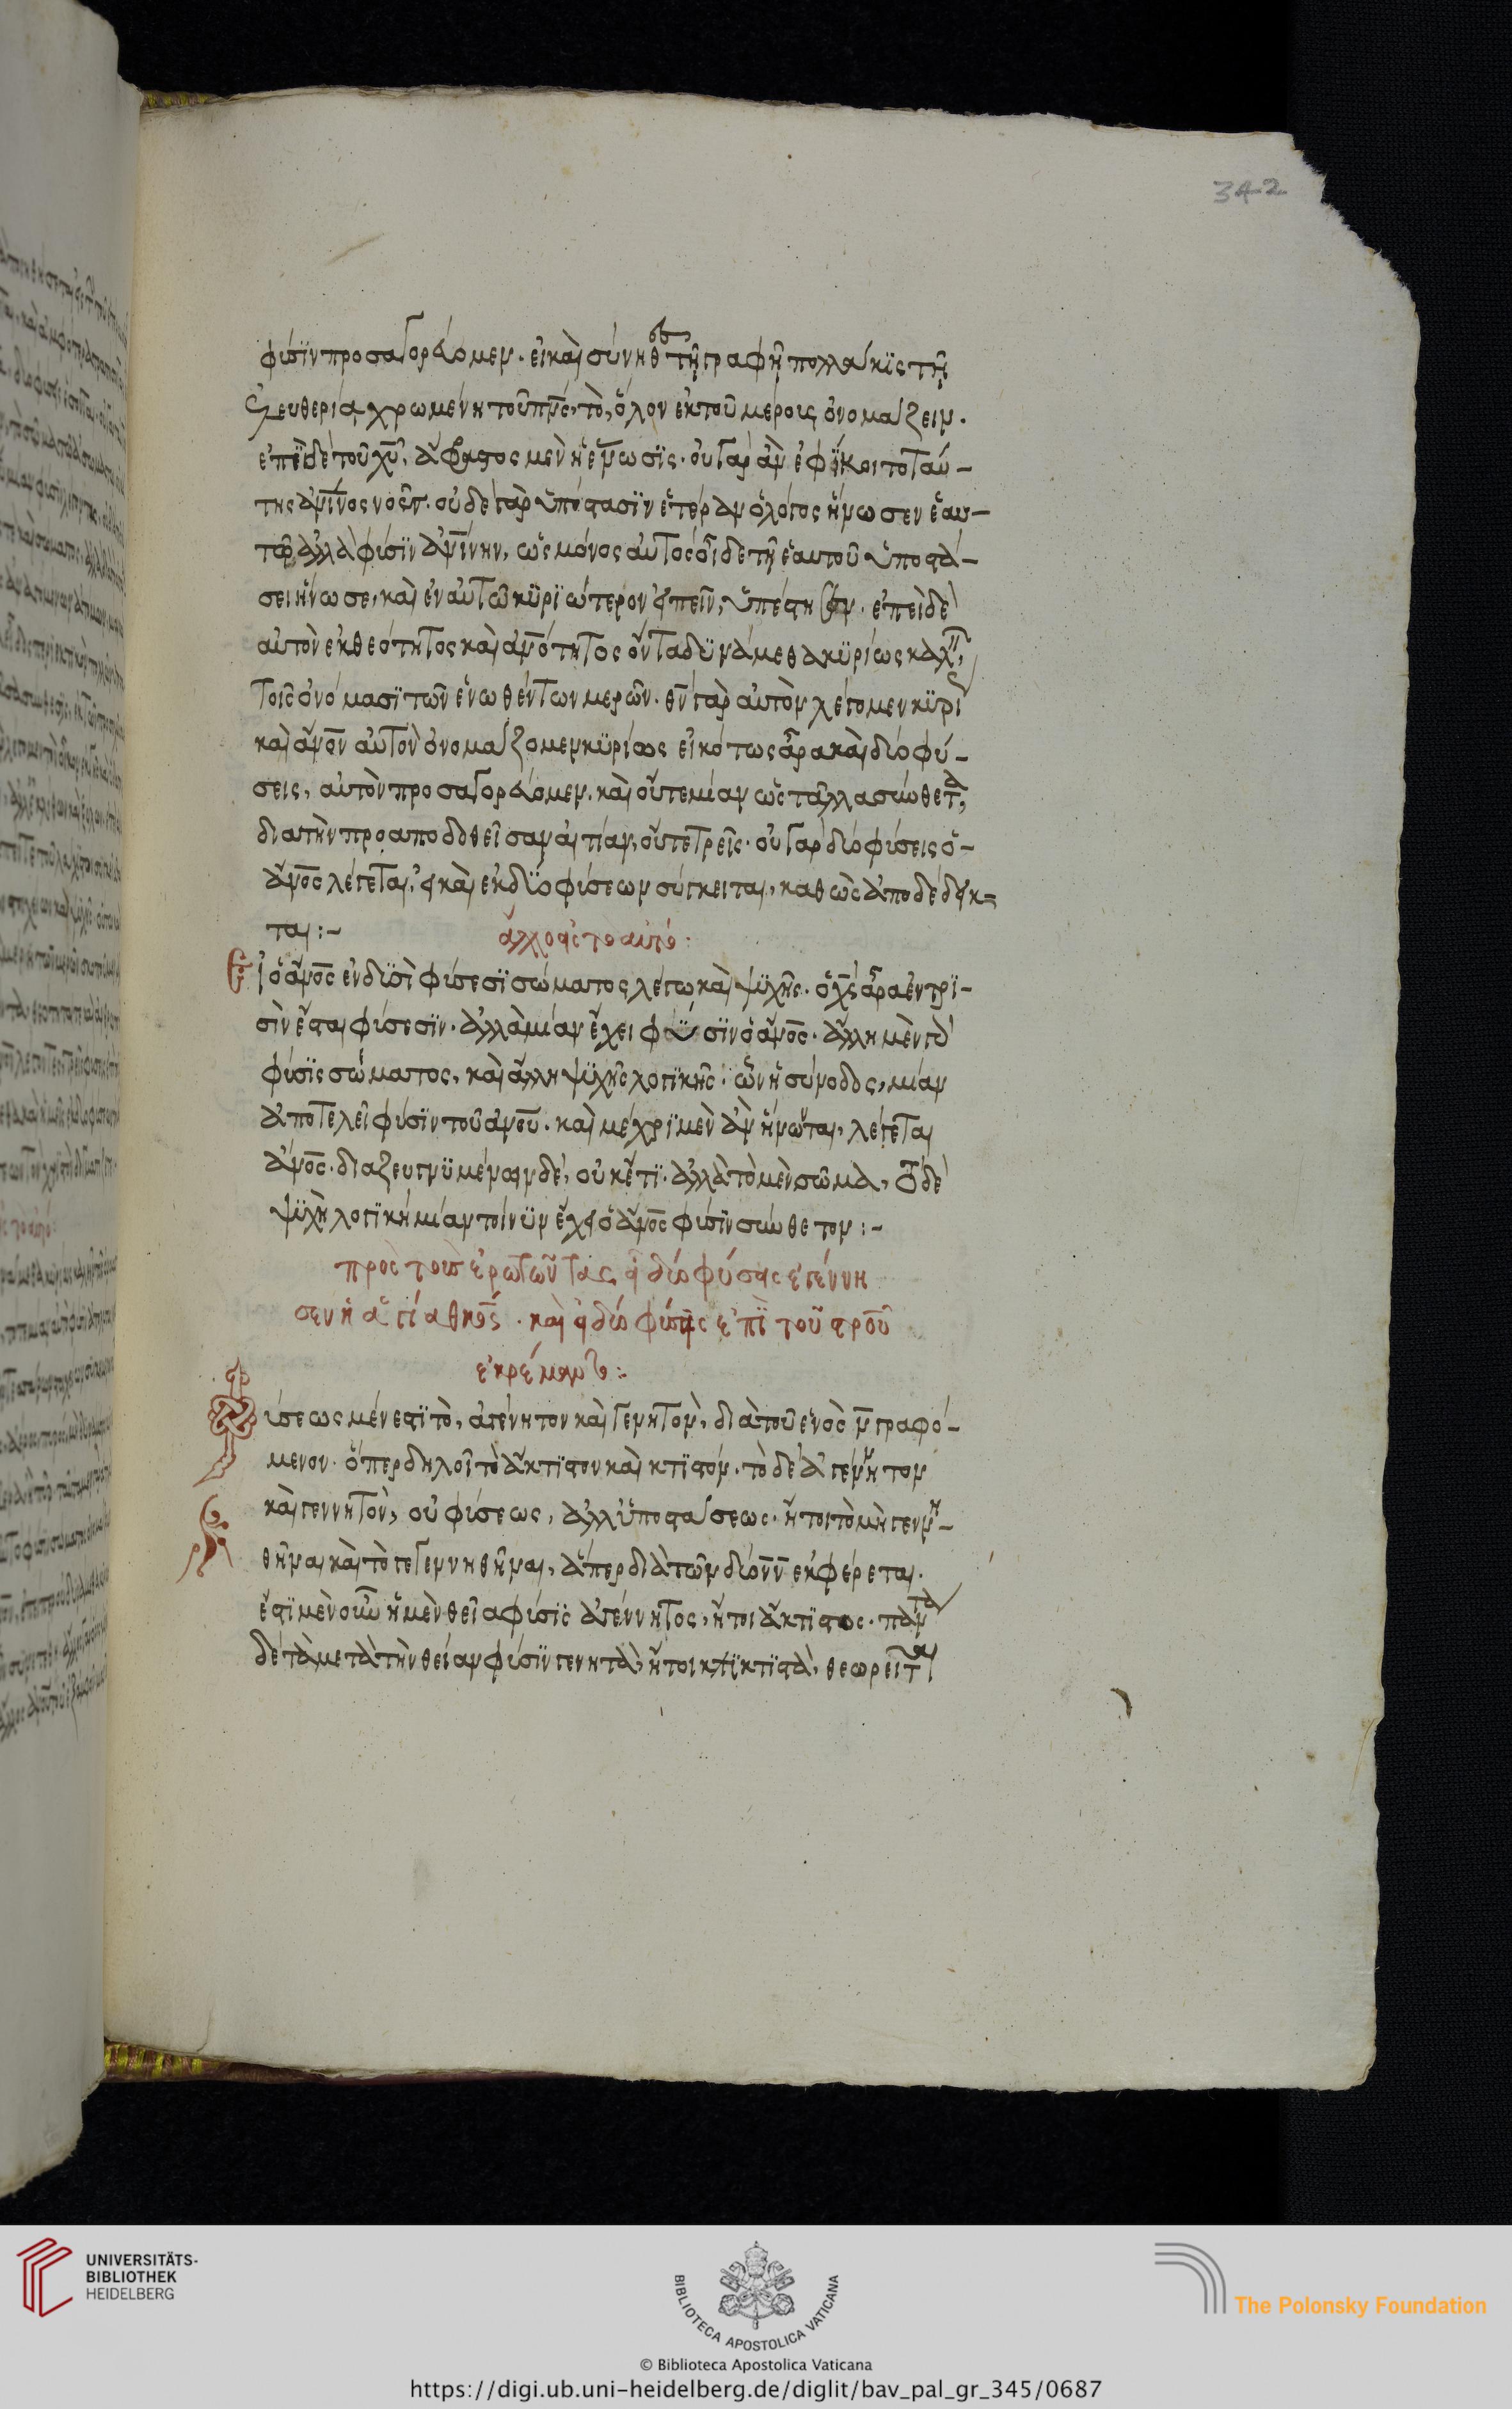 342
φύσϊν προσαγορεύομεν. εἰ καὶ σύνηθες τῆ γραφῆ πολλάκϊς τῆ
ἐλευθερία χρωμένη τοῦ πνς, τὸ, ὅλον ἐκ τοῦ μέρους ὀνομάζειν.
ἐπεϊ δὲ τοῦ χυ, ἄφραστος μὲν ἡ ἕνωσϊς. οὐ γὰρ ἂν ἐφίκοιτο ταύ-
της ἀνινος νοῦς. οὐδὲ γὰρ ὑπόστασϊν ἑτέραν ὁ λόγος ἥνωσεν ἑαυ-
τῶ ἀλλὰ φύσϊν ἀνίνην, ὡς μόνος αὐτὸς οἶδε τῆ ἑαυτοῦ ὑποστά-
σει ἥνωσε, καὶ ἐν αὐτῶ κϋρϊώτερον εἰπεῖν, ὑπέστησεν. ἐπεὶ δὲ
αὐτὸν ἐκ θεότητος καὶ ἀνότητος ὄντα δϋνάμεθα κϋρίως καλεῖν,
τοῖς ὀνόμασϊ τῶν ἑνωθέντων μερῶν. θν γὰρ αὐτὸν λέγομεν κϋρί
καὶ ἄνον αὐτὸν ὀνομάζομεν κϋρίως εἰκότως ἄρα καὶ δύο φύ-
σεις, αὐτὸν προσαγορεύομεν. καὶ οὔτε μίαν ὡς τἄλλα σύνθετα,
διὰ τὴν προαποδοθεῖσαν αἰτίαν, οὔτε τρεῖς. οὐ γὰρ δύο φύσεις ὁ-
ἄνος λέγεται, εἰ καὶ ἐκ δύο φύσεων σύγκειται, καθὼς ἀποδέδεικ-
ται:-
ἄλλο εἰς τὸ αὐτό:
Εἰ ὁ ἄνος ἐν δϋσὶ φύσεσϊ σώματος λέγω καὶ ψϋχῆς. ὁ χς ἄρα ἐν τρϊ-
σὶν ἔσται φύσεσϊν. ἀλλὰ μίαν ἔχει φύσϊν ὁ ἄνος. ἄλλη μὲν γὰ
φύσϊς σώματος, καὶ ἄλλη ψϋχῆς λογϊκῆς. ὧν ἡ σύνοδος, μίαν
ἀποτελεῖ φύσϊν τοῦ ἀνου. καὶ μέχρϊ μὲν ἂν ἥνωται, λέγεται
ἄνος. διαζευγνϋμέναν δὲ, οὐκ ἔτϊ. ἀλλὰ τὸ μὲν σῶμα, τὸ δὲ
ψϋχὴ λογϊκή μίαν τοίνϋν ἔχει ὁ ἄνος φύσϊν σύνθετον:-
πρὸς τοὺς ἐρωτῶντας εἰ δύο φύσεις ἐγέννη
σεν ἡ ἁγία θκος. καὶ εἰ δύο φύσεις ἐπὶ τοῦ στροῦ
ἐκρέμαντο:
Φύσεως μέν ἐστϊ τὸ, ἀγένητον καὶ γενητὸν, διὰ τοῦ ἑνὸς ν γραφό-
μενον. ὅπερ δηλοῖ τὸ ἄκτϊστον καὶ κτϊστόν. τὸ δὲ ἀγέννητον
καὶ γεννητὸν, οὐ φύσεως, ἀλλ' ὑποστάσεως. ἤτοι τὸ μὴ γενν-
θῆναι καὶ τὸ γεγεννηθῆναι, ἅπερ διὰ τῶν δύο νν ἐκφέρεται.
ἔστϊ μὲν οὖν ἡ μὲν θεία φύσϊς ἀγέννητος, ἤτοι ἄκτϊστος. πάντα
δὲ τὰ μετὰ τὴν θείαν φύσϊν γενητὰ, ἤτοι κτϊστὰ, θεωρεῖται
UNIVERSITÄTS-
BIBLIOTHEK
HEIDELBERG
BIBLIOTECA APOSTOLICA VATICANA
The Polonsky Foundation
© Biblioteca Apostolica Vaticana
https://digi.ub.uni-heidelberg.de/diglit/bav_pal_gr_345/0687